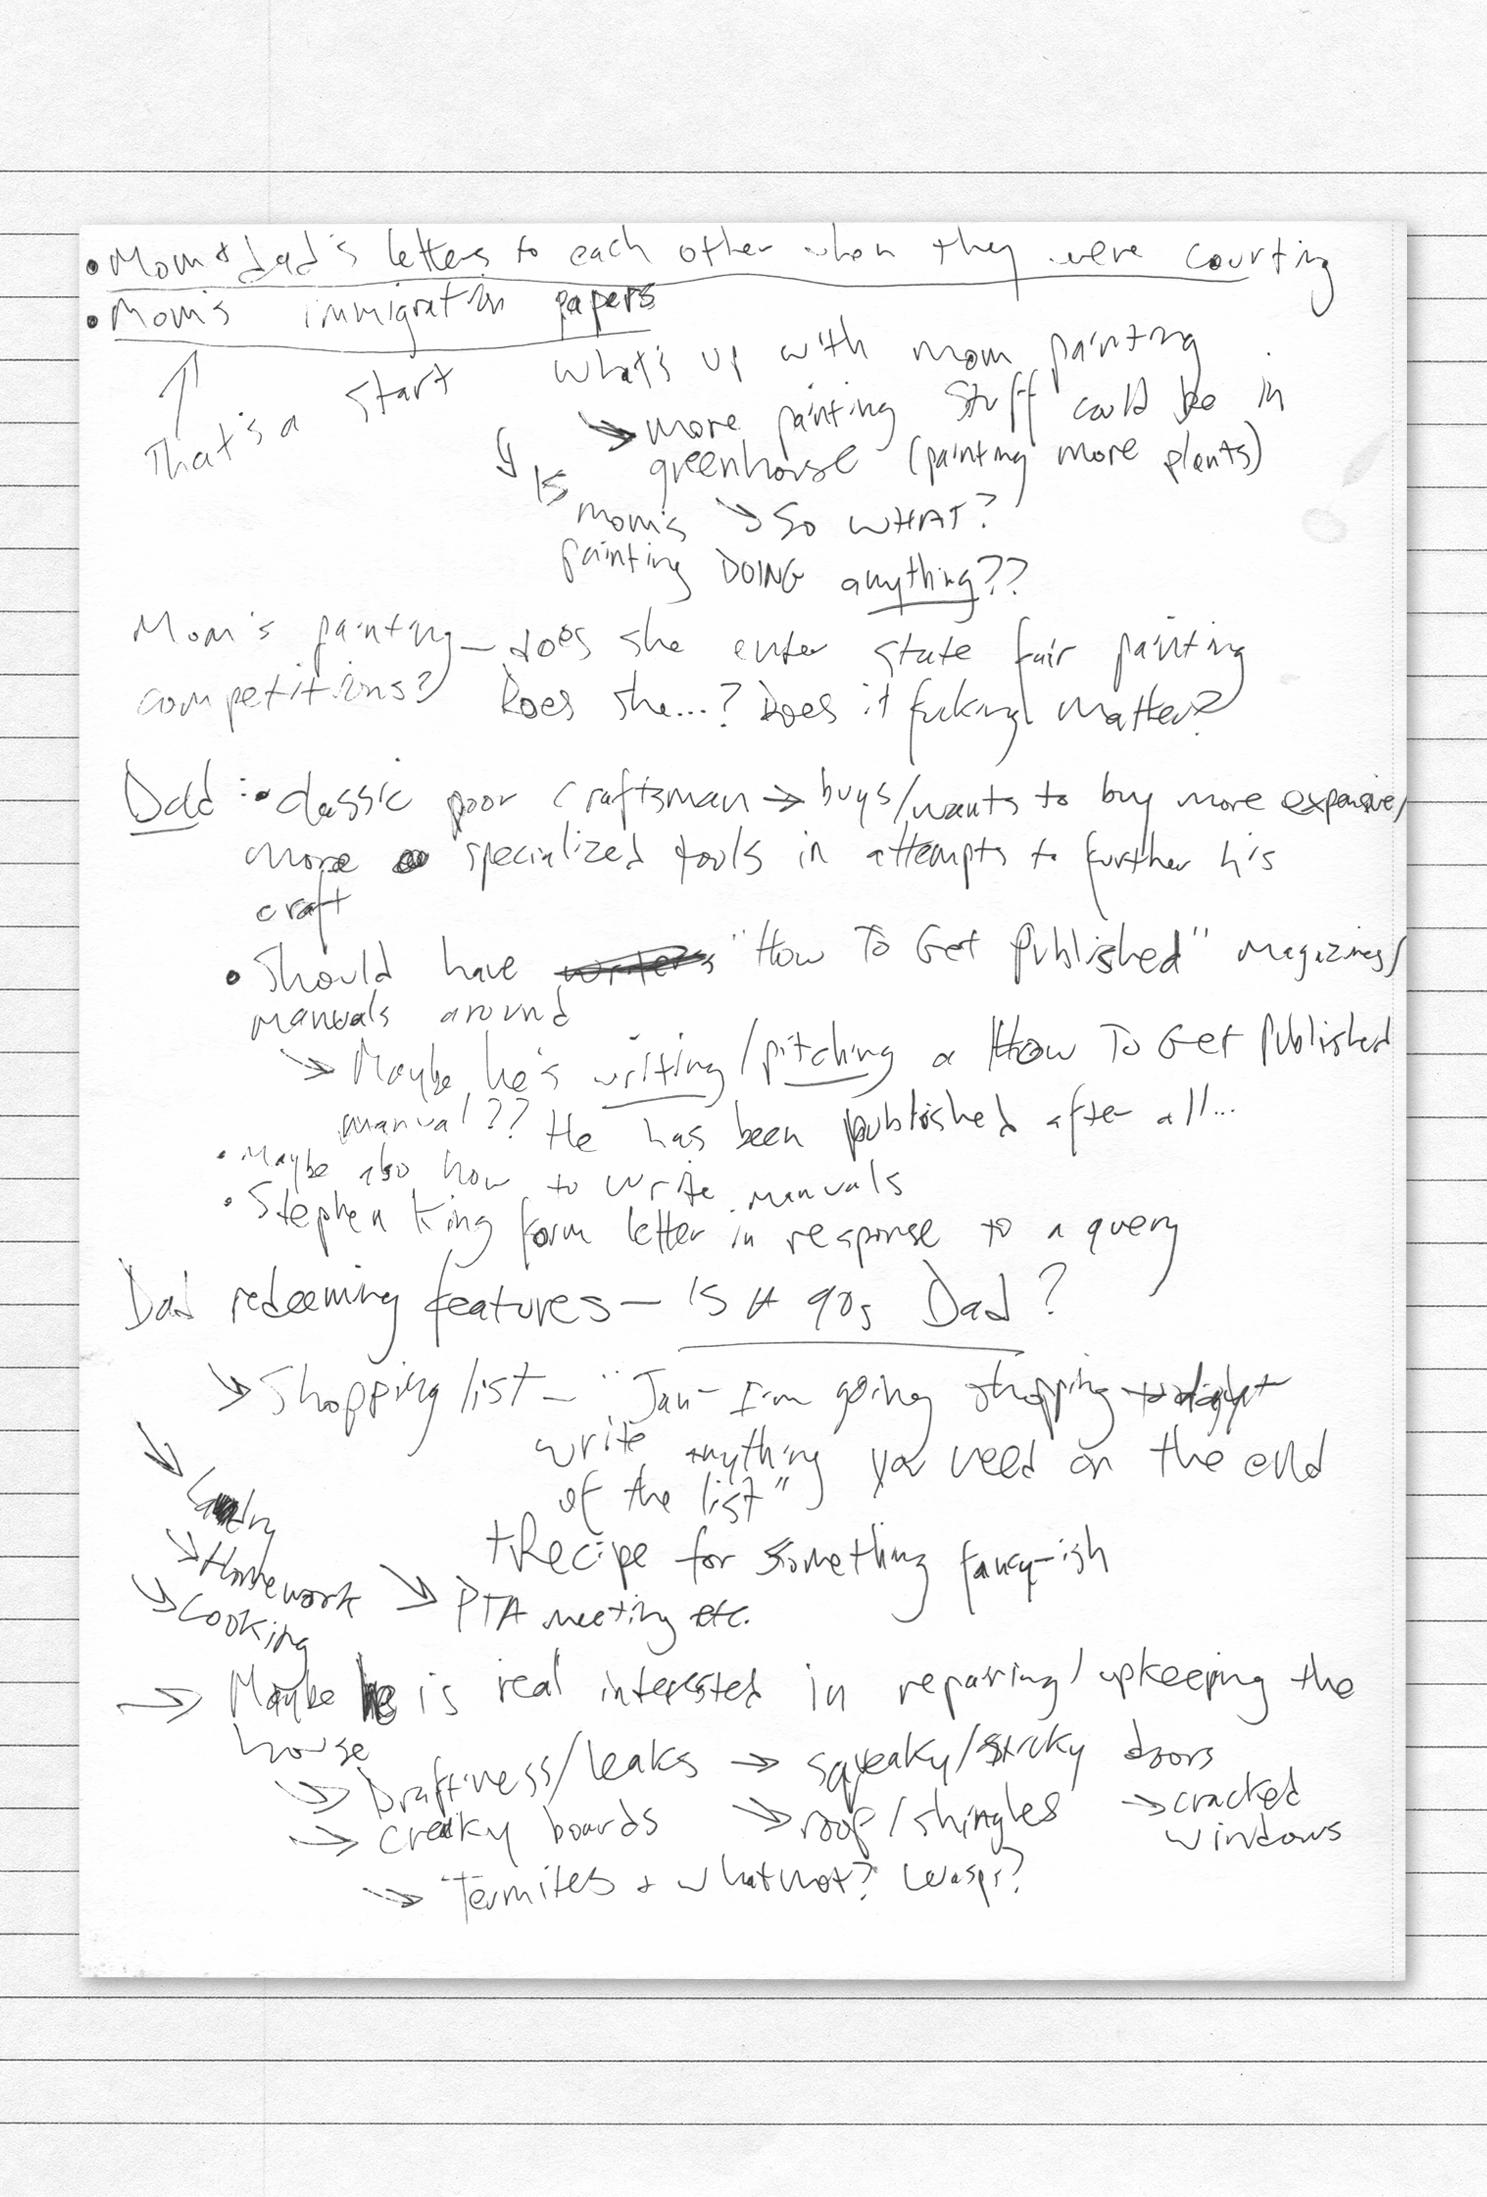 • Mom & dad's letters to each other when they were courting
• Mom's immigration papers
↑ That's a start
What's up with mom painting
→ more painting stuff could be in
greenhouse (painting more plants)
→ So WHAT?
↓ Is
mom's
painting DOING anything??
Mom's painting — does she enter state fair painting
competitions? Does she...? Does it fucking matter?
Dad: • classic poor craftsman → buys/wants to buy more expensive/
more specialized tools in attempts to further his
craft
• Should have writers "How To Get Published" magazines/
manuals around
→ Maybe he's writing/pitching a How To Get Published
manual?? He has been published after all...
• Maybe also how to write manuals
• Stephen King form letter in response to a query
Dad redeeming features — is a 90s Dad?
→ Shopping list — "Jan- I'm going shopping tonight
write anything you need on the end
of the list"
+ Recipe for something fancy-ish
→ Laundry
→ Homework
→ Cooking
→ PTA meeting etc.
→ Maybe he is real interested in repairing/upkeeping the
house
→ Draftiness/leaks → squeaky/sticky doors
→ creaky boards → roof/shingles → cracked
windows
→ Termites & whatnot? Wasps?